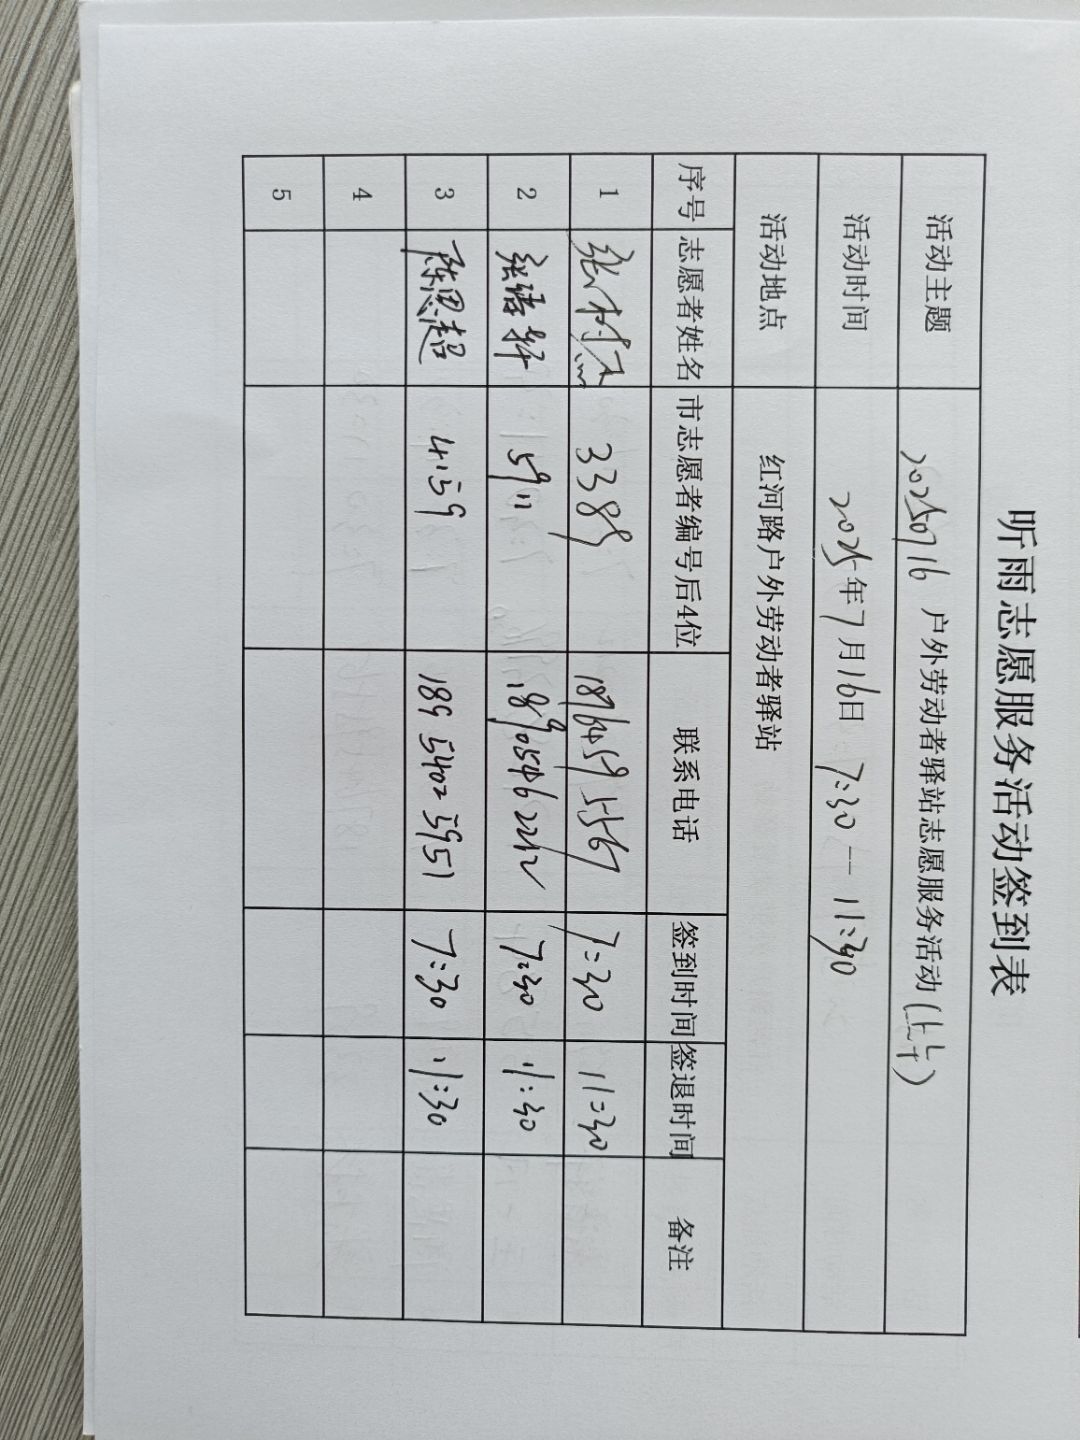 听雨志愿服务活动签到表
活动主题 20250716 户外劳动者驿站志愿服务活动(上午)
活动时间 2025年7月16日 7:30—11:30
活动地点 红河路户外劳动者驿站
序号 志愿者姓名 市志愿者编号后4位 联系电话 签到时间 签退时间 备注
1 张树杰 3389 7:30 11:30
2 5911 18905462212 7:30 11:30
3 陈思超 4159 189 5402 5951 7:30 11:30
4
5